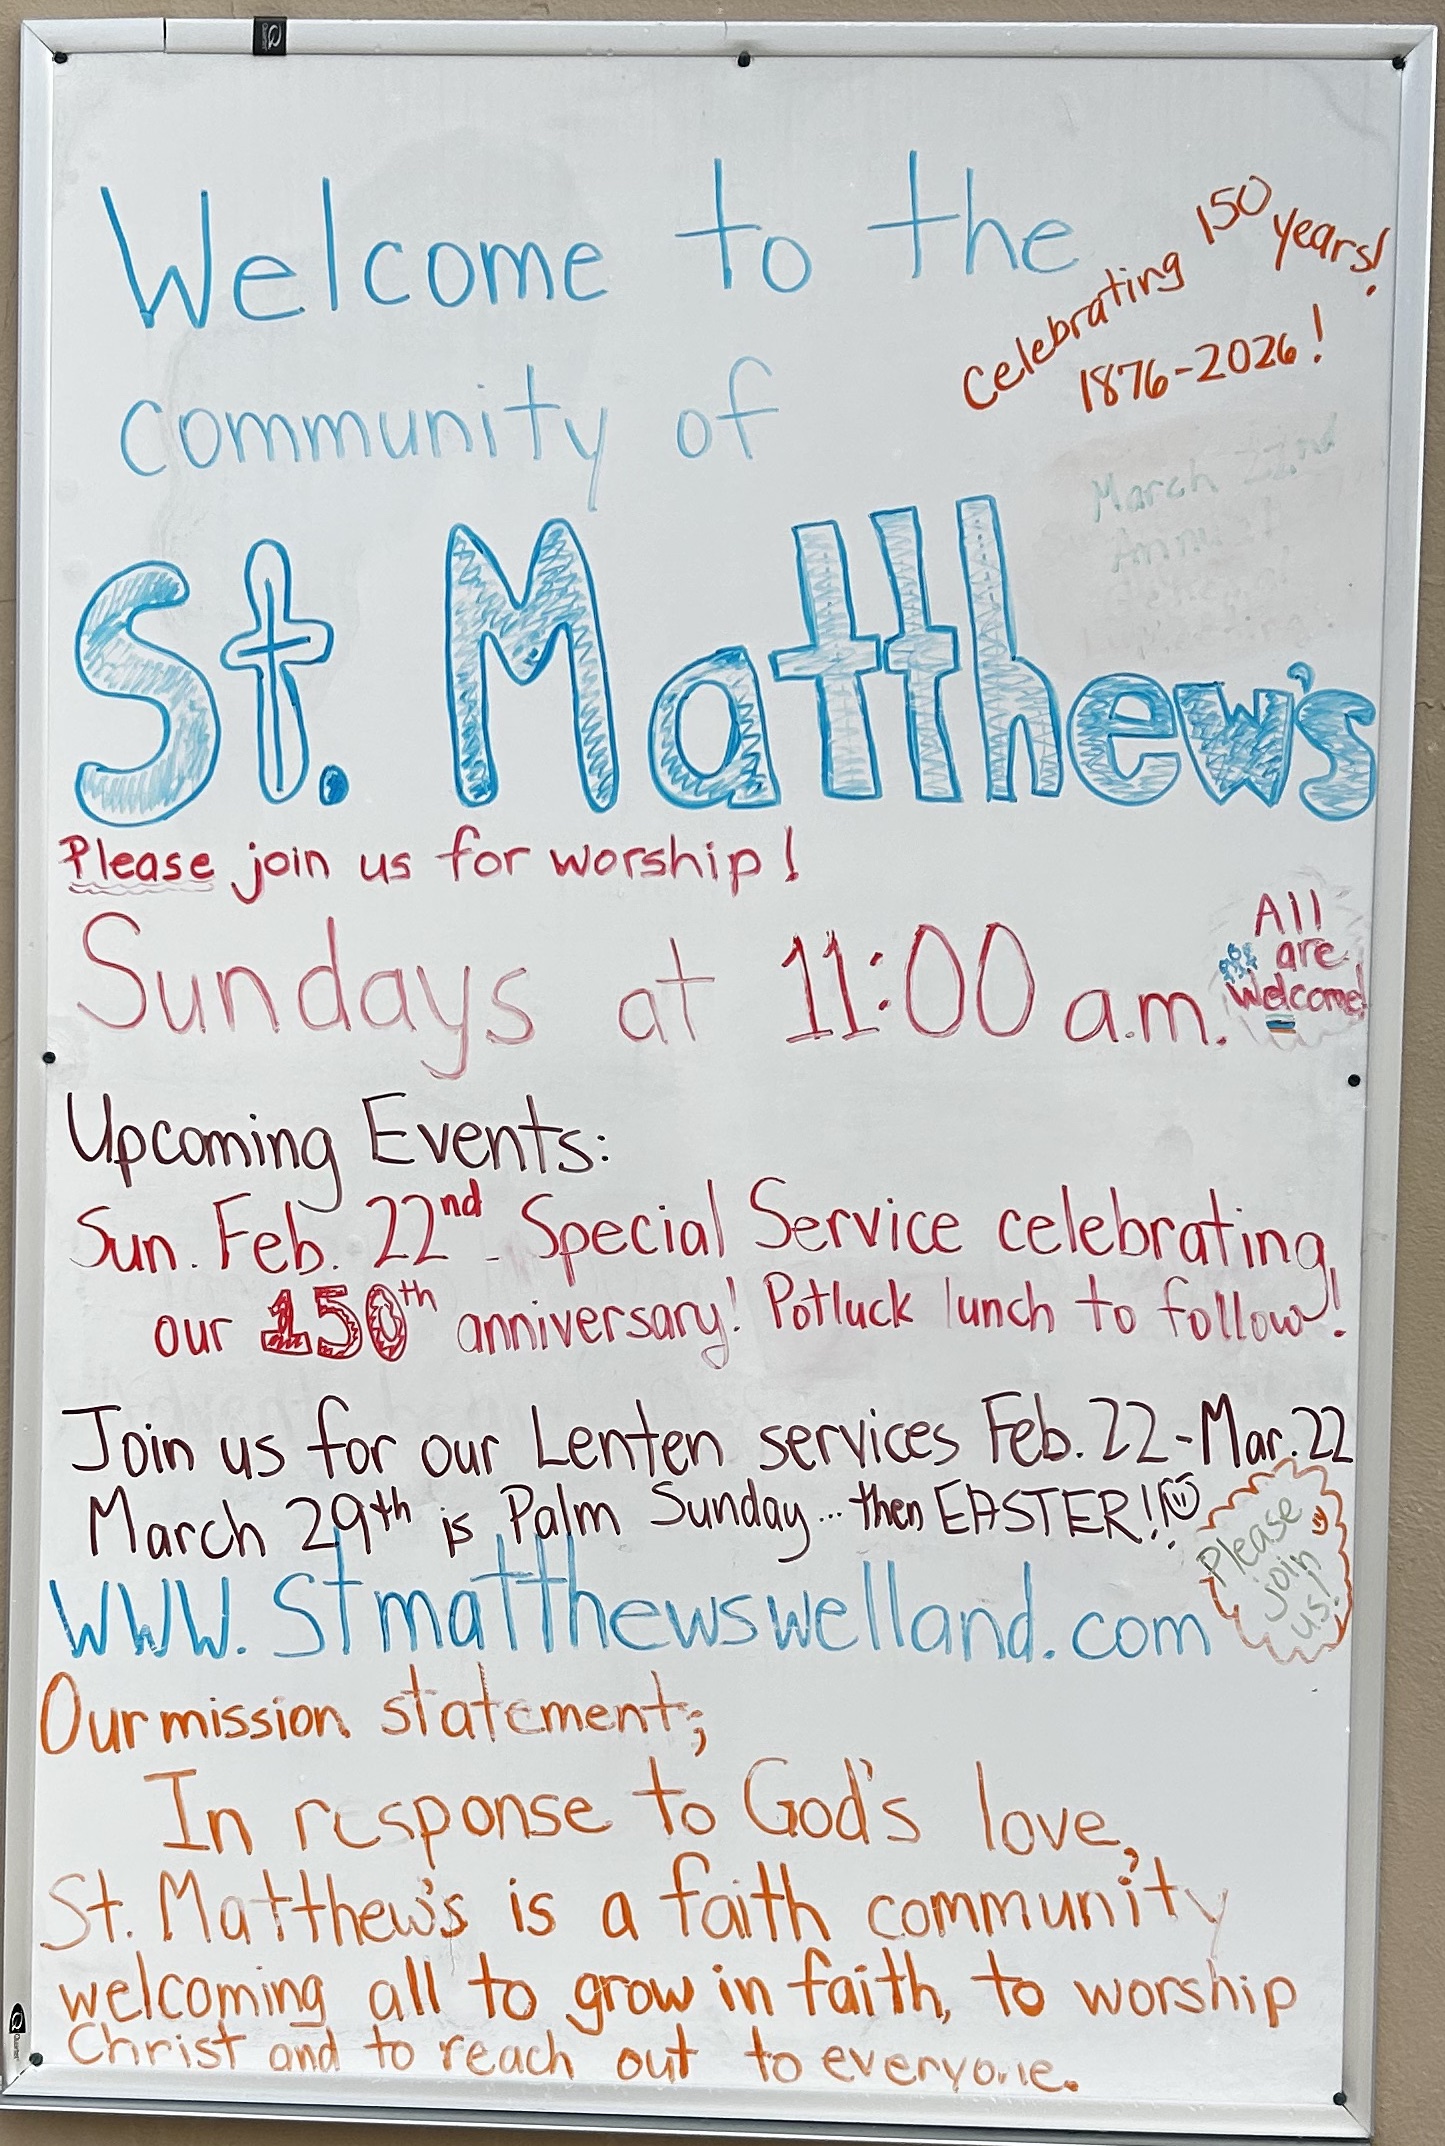 Welcome to the
Celebrating 150 years!
1876-2026!
community of
March 22nd
Annual
St. Matthew's
Please join us for worship!
Sundays at 11:00 a.m.
All
are
Welcome!
Upcoming Events:
Sun. Feb. 22nd - Special Service celebrating
our 150th anniversary! Potluck lunch to follow!
Join us for our Lenten services Feb. 22-Mar. 22
March 29th is Palm Sunday... then EASTER!!
Please
join
us!
www.Stmatthewswelland.com
Our mission statement;
In response to God's love,
St. Matthew's is a faith community
welcoming all to grow in faith, to worship
Christ and to reach out to everyone.